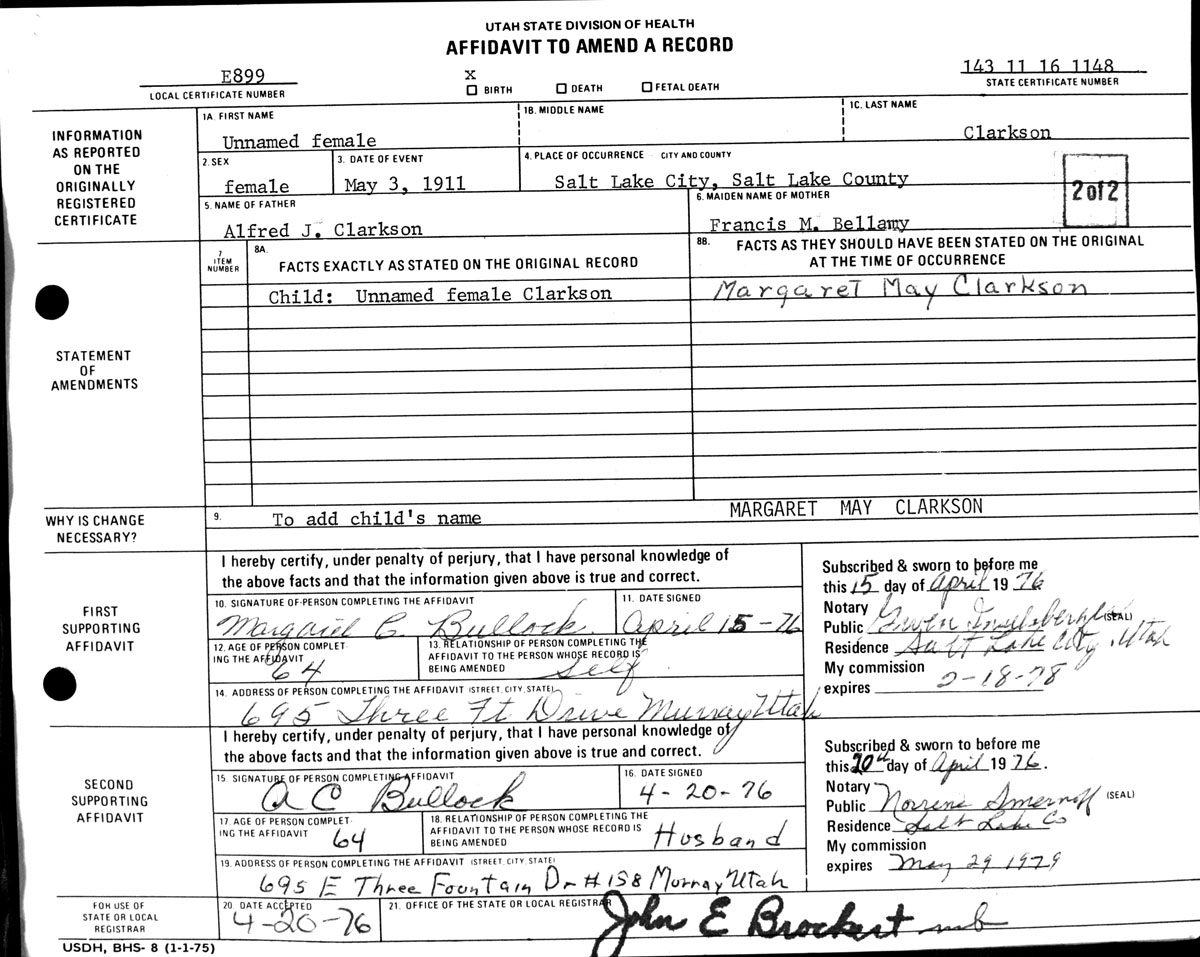 UTAH STATE DIVISION OF HEALTH
AFFIDAVIT TO AMEND A RECORD
E899
LOCAL CERTIFICATE NUMBER
X
BIRTH
DEATH
FETAL DEATH
143 11 16 1148
STATE CERTIFICATE NUMBER
INFORMATION
AS REPORTED
ON THE
ORIGINALLY
REGISTERED
CERTIFICATE
1A. FIRST NAME
Unnamed female
1B. MIDDLE NAME
1C. LAST NAME
Clarkson
2. SEX
female
3. DATE OF EVENT
May 3, 1911
4. PLACE OF OCCURRENCE CITY AND COUNTY
Salt Lake City, Salt Lake County
2 of 2
5. NAME OF FATHER
Alfred J. Clarkson
6. MAIDEN NAME OF MOTHER
Francis M. Bellamy
STATEMENT
OF
AMENDMENTS
7
ITEM
NUMBER
8A.
FACTS EXACTLY AS STATED ON THE ORIGINAL RECORD
8B. FACTS AS THEY SHOULD HAVE BEEN STATED ON THE ORIGINAL
AT THE TIME OF OCCURRENCE
Child: Unnamed female Clarkson
Margaret May Clarkson
WHY IS CHANGE
NECESSARY?
9. To add child's name
MARGARET MAY CLARKSON
FIRST
SUPPORTING
AFFIDAVIT
I hereby certify, under penalty of perjury, that I have personal knowledge of
the above facts and that the information given above is true and correct.
10. SIGNATURE OF PERSON COMPLETING THE AFFIDAVIT
Margaret C. Bullock
11. DATE SIGNED
April 15-76
12. AGE OF PERSON COMPLET-
ING THE AFFIDAVIT
64
13. RELATIONSHIP OF PERSON COMPLETING THE
AFFIDAVIT TO THE PERSON WHOSE RECORD IS
BEING AMENDED
Self
14. ADDRESS OF PERSON COMPLETING THE AFFIDAVIT (STREET, CITY, STATE)
695 Three Ft Drive Murray Utah
Subscribed & sworn to before me
this 15 day of April 1976
Notary
Public Gwen (SEAL)
Residence Salt Lake City, Utah
My commission
expires 2-18-78
SECOND
SUPPORTING
AFFIDAVIT
I hereby certify, under penalty of perjury, that I have personal knowledge of
the above facts and that the information given above is true and correct.
15. SIGNATURE OF PERSON COMPLETING AFFIDAVIT
A C Bullock
16. DATE SIGNED
4-20-76
17. AGE OF PERSON COMPLET-
ING THE AFFIDAVIT
64
18. RELATIONSHIP OF PERSON COMPLETING THE
AFFIDAVIT TO THE PERSON WHOSE RECORD IS
BEING AMENDED
Husband
19. ADDRESS OF PERSON COMPLETING THE AFFIDAVIT (STREET, CITY, STATE)
695 E Three Fountain Dr #158 Murray Utah
Subscribed & sworn to before me
this 20th day of April 1976.
Notary
Public Norrene Smernoff (SEAL)
Residence Salt Lake Co
My commission
expires May 29 1979
FOR USE OF
STATE OR LOCAL
REGISTRAR
20. DATE ACCEPTED
4-20-76
21. OFFICE OF THE STATE OR LOCAL REGISTRAR
John E Brockert mb
USDH, BHS- 8 (1-1-75)